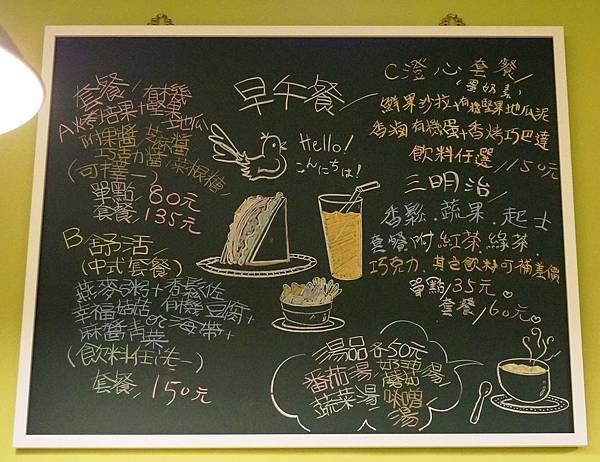 早午餐
Hello!
こんにちは!
套餐/有機
A烤焙果+堅果地瓜
附果醬/花生醬
巧達力醬/菜根糖
(可擇一)
單點 80元
套餐 135元
B 舒活/
(中式套餐)
燕麥粥+香鬆佐
幸福菇菇/有機豆腐+
麻醬青菜or海帶+
(飲料任選一)
套餐/150元
C澄心套餐/
(蛋奶素)
鮮果沙拉+有機堅果地瓜泥
香滷有機蛋+香烤巧巴達
飲料任選/150元
三明治/
香鬆.蔬果.起士
套餐附紅茶綠茶.
巧克力.其它飲料可補差價
單點/35元.
套餐/60元.
湯品各50元
番茄湯/蘑菇湯/
蔬菜湯/味噌
湯